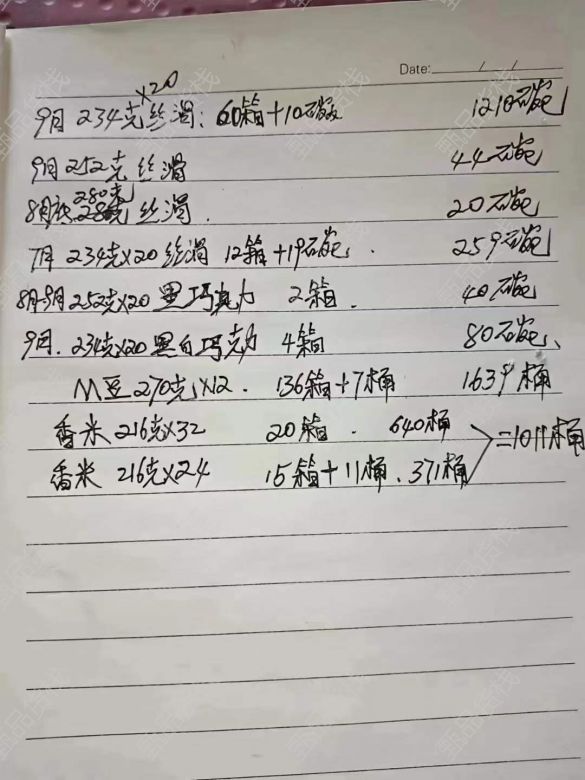 Date: / /
×20
9月 234克丝滑: 60箱+10碗 1210碗
9月 252克 丝滑 44碗
280克
8月 丝滑. 20碗
7月 234克×20 丝滑 12箱+19碗. 259碗
8月-9月 252克×20 黑巧克力 2箱. 40碗
9月. 234克×20 黑白巧克力 4箱 80碗
M豆 270克×12. 136箱+7桶 1639桶
香米 216克×32 20箱. 640桶
=1011桶
香米 216克×24 15箱+11桶. 371桶